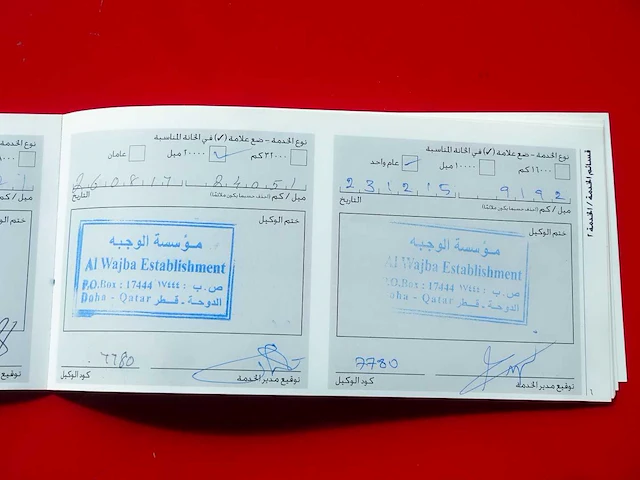 قسائم الخدمة / الخدمة ٢
نوع الخدمة - ضع علامة (✓) في الخانة المناسبة
١٦٠٠٠ كم
١٠٠٠٠ ميل
عام واحد
9192
231215
ميل / كم
التاريخ
ختم الوكيل
مؤسسة الوجبه
Al Wajba Establishment
P.O.Box : 17444 ص.ب : ١٧٤٤٤
Doha - Qatar الدوحة - قطر
7780
توقيع مدير الخدمة
كود الوكيل
٦
نوع الخدمة - ضع علامة (✓) في الخانة المناسبة
٣٢٠٠٠ كم
٢٠٠٠٠ ميل
عامان
84051
260817
ميل / كم
التاريخ
ختم الوكيل
مؤسسة الوجبه
Al Wajba Establishment
P.O.Box : 17444 ص.ب : ١٧٤٤٤
Doha - Qatar الدوحة - قطر
7780
توقيع مدير الخدمة
كود الوكيل